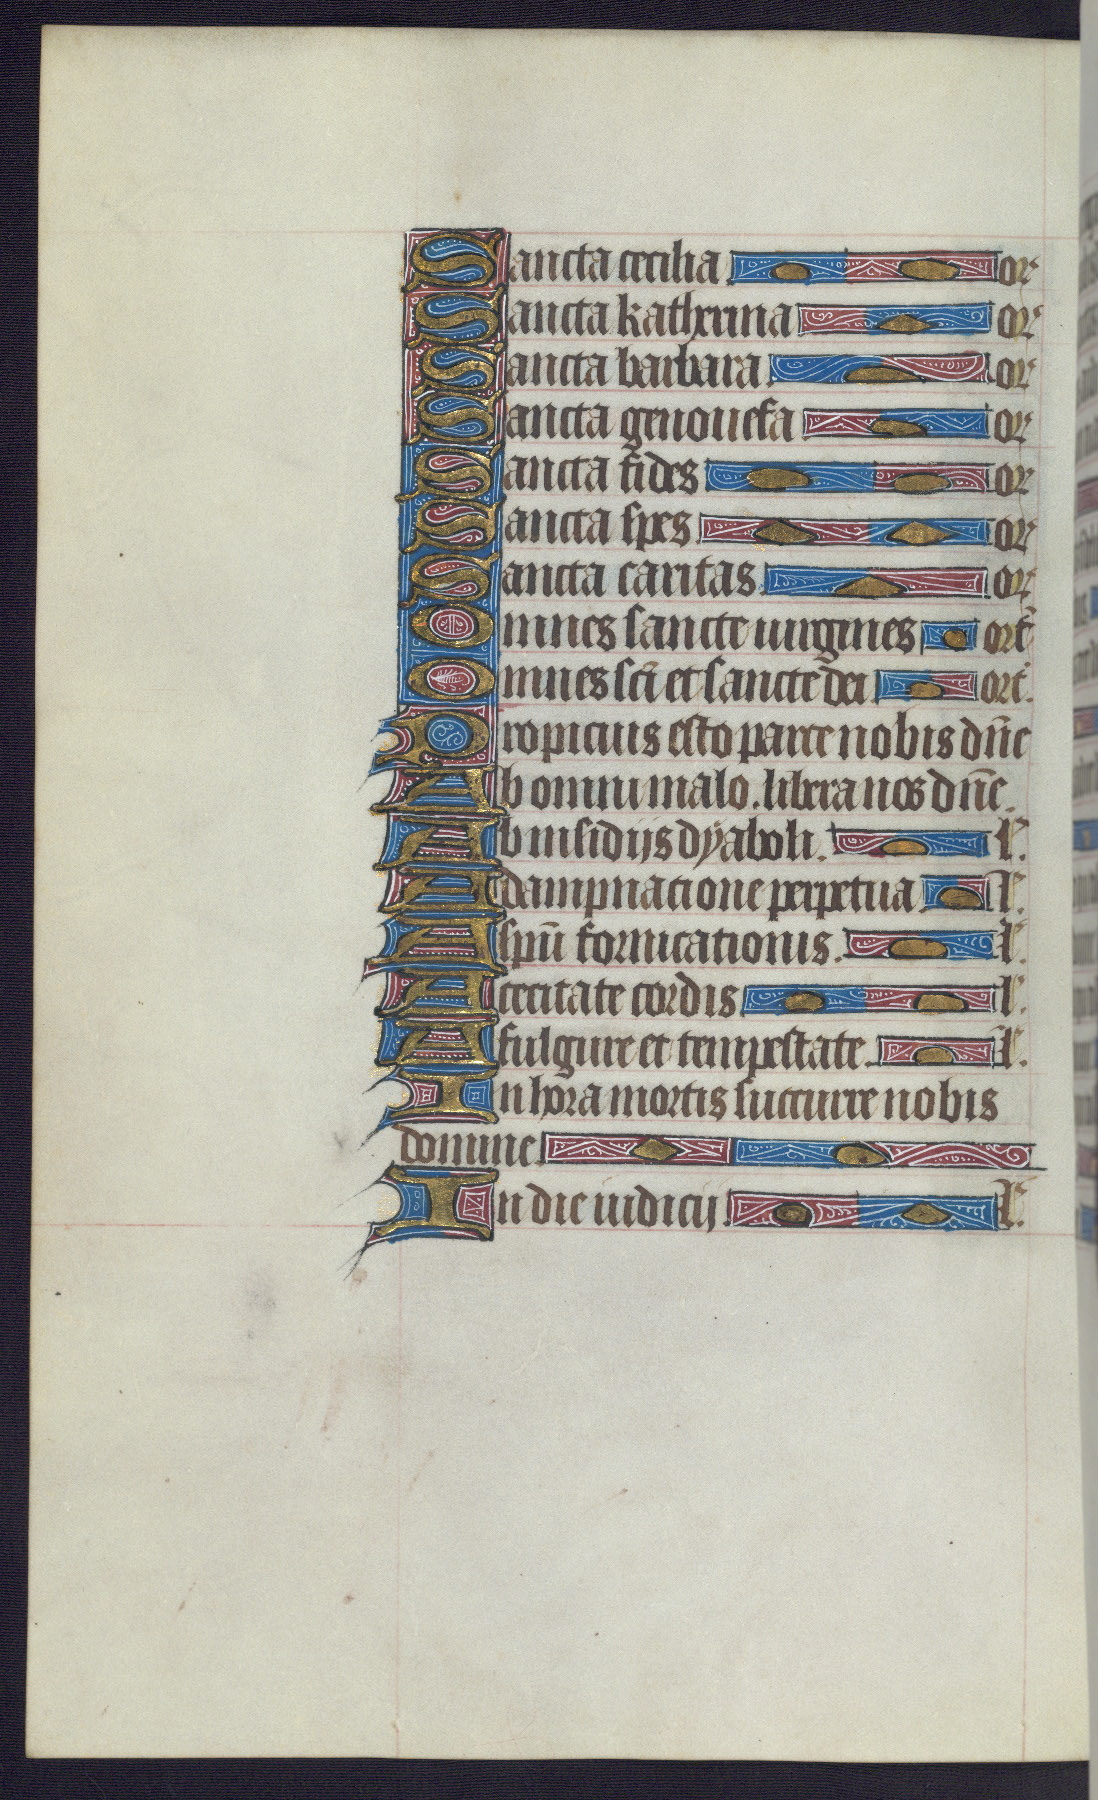 Sancta cecilia or
Sancta katherina or
Sancta barbara or
Sancta genouefa or
Sancta fides or
Sancta spes or
Sancta caritas or
Omnes sancte uirgines ort̄
Omnes sc̄i et sancte dei ort̄.
Propicius esto parce nobis dn̄e
Ab omni malo. libera nos dn̄e.
Ab insidijs dyaboli. l'.
A dampnatione perpetua l'.
A spū fornicationis. l'.
A cecitate cordis l'.
A fulgure et tempestate. l'.
In hora mortis succurre nobis
domine.
In die iudicij l'.